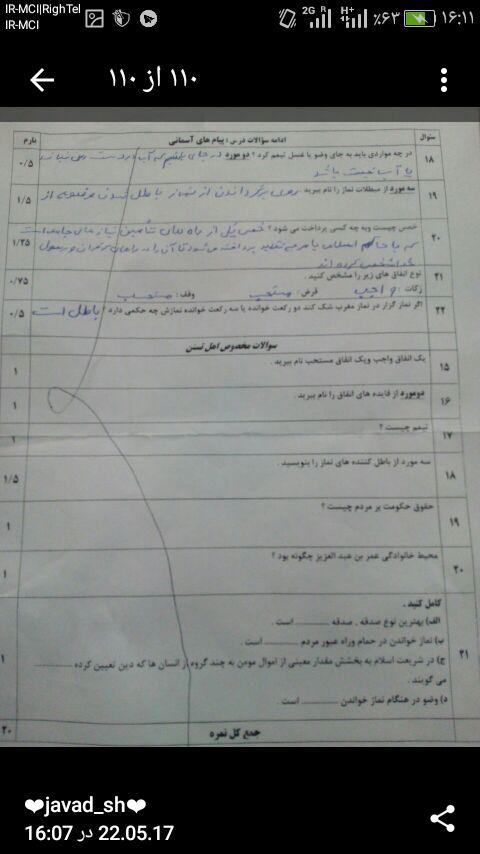 IR-MCI|RighTel
IR-MCI
2G R H+ ٪۶۳ ۱۶:۱۱
۱۱۰ از ۱۱۰
سئوال ادامه سؤالات درس : پیام های آسمانی بارم
۱۸ در چه مواردی باید به جای وضو یا غسل تیمم کرد ؟ دو مورد در جای که آب در دست رس نباشد ۰/۵
یا آب نجس باشد
۱۹ سه مورد از مبطلات نماز را نام ببرید روی برگرداندن از نماز باطل شدن وضو ۱/۵
۲۰ خمس چیست وبه چه کسی پرداخت می شود ؟ خمس یکی از راه های تأمین نیاز های جامعه است ۱/۲۵
که به حاکم اسلامی یا مرجع تقلید پرداخت می شود تا آن را در راه
خدا
۲۱ نوع انفاق های زیر را مشخص کنید . ۰/۷۵
زکات : واجب قرض : مستحب وقف : مستحب
۲۲ اگر نماز گزار در نماز مغرب شک کند دو رکعت خوانده یا سه رکعت خوانده نمازش چه حکمی دارد ؟ باطل است ۰/۵
سوالات مخصوص اهل تسنن
۱۵ یک انفاق واجب ویک انفاق مستحب نام ببرید . ۱
۱۶ دومورد از فایده های انفاق را نام ببرید . ۱
۱۷ تیمم چیست ؟ ۱
۱۸ سه مورد از باطل کننده های نماز را بنویسید . ۱/۵
۱۹ حقوق حکومت بر مردم چیست ؟ ۱
۲۰ محیط خانوادگی عمر بن عبد العزیز چگونه بود ؟ ۱
کامل کنید .
الف) بهترین نوع صدقه ، صدقه ............ است .
ب) نماز خواندن در حمام وراه عبور مردم ............ است .
۲۱ ج) در شریعت اسلام به بخشش مقدار معینی از اموال مومن به چند گروه از انسان ها که دین تعیین کرده ............ ۱
می گویند .
د) وضو در هنگام نماز خواندن ............ است .
جمع کل نمره ۲۰
❤javad_sh❤
22.05.17 در 16:07